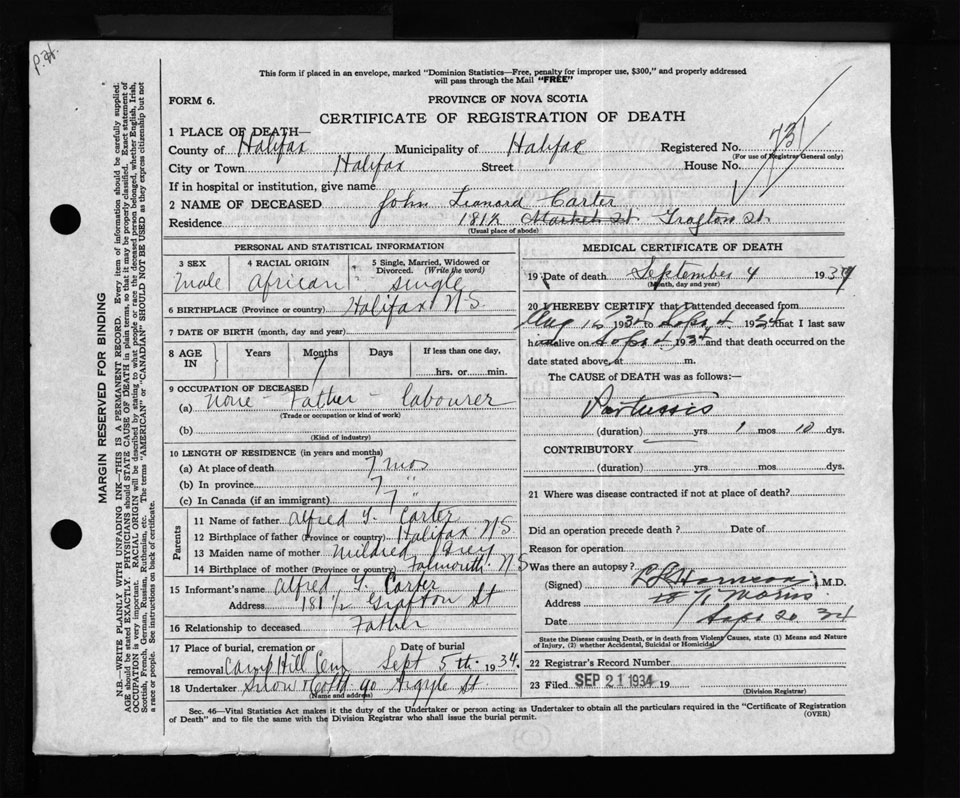 p.H.
This form if placed in an envelope, marked "Dominion Statistics—Free, penalty for improper use, $300," and properly addressed
will pass through the Mail "FREE"
FORM 6.
PROVINCE OF NOVA SCOTIA
CERTIFICATE OF REGISTRATION OF DEATH
1 PLACE OF DEATH—
County of Halifax Municipality of Halifax Registered No. 731
(For use of Registrar General only)
City or Town Halifax Street House No.
If in hospital or institution, give name
2 NAME OF DECEASED John Leonard Carter
Residence 181½ Market St Grafton St.
(Usual place of abode)
PERSONAL AND STATISTICAL INFORMATION
3 SEX 4 RACIAL ORIGIN 5 Single, Married, Widowed or
Divorced. (Write the word)
Male African single
6 BIRTHPLACE (Province or country) Halifax N.S.
7 DATE OF BIRTH (month, day and year)
8 AGE IN Years Months Days If less than one day,
7
hrs. or min.
9 OCCUPATION OF DECEASED
(a) none - Father - labourer
(Trade or occupation or kind of work)
(b)
(Kind of industry)
10 LENGTH OF RESIDENCE (in years and months)
(a) At place of death 7 mos
(b) In province 7 "
(c) In Canada (if an immigrant) 7 "
Parents
11 Name of father Alfred Carter
12 Birthplace of father (Province or country) Halifax N.S
13 Maiden name of mother Mildred Grey
14 Birthplace of mother (Province or country) Falmouth N S
15 Informant's name Alfred Carter
Address 181 1/2 Grafton St
16 Relationship to deceased Father
17 Place of burial, cremation or Date of burial
removal Camp Hill Cem Sept 5th 1934.
18 Undertaker Snow & Co Ltd 90 Argyle St.
(Name and address)
MEDICAL CERTIFICATE OF DEATH
19 Date of death September 4 1934
(Month, day and year)
20 I HEREBY CERTIFY that I attended deceased from
Aug 1934 to Sept 4, 1934 that I last saw
h alive on Sept 4 1934 and that death occurred on the
date stated above, at m.
The CAUSE OF DEATH was as follows:—
Pertussis
(duration) yrs 1 mos 10 dys.
CONTRIBUTORY
(duration) yrs mos dys.
21 Where was disease contracted if not at place of death?
Did an operation precede death? Date of
Reason for operation
Was there an autopsy?
(Signed) M.D.
Address Morris
Date Sept 20 34
State the Disease causing Death, or in death from Violent Causes, state (1) Means and Nature
of Injury, (2) whether Accidental, Suicidal or Homicidal.
22 Registrar's Record Number
23 Filed SEP 21 1934 19
(Division Registrar)
Sec. 46—Vital Statistics Act makes it the duty of the Undertaker or person acting as Undertaker to obtain all the particulars required in the "Certificate of Registration
of Death" and to file the same with the Division Registrar who shall issue the burial permit.
(OVER)
MARGIN RESERVED FOR BINDING
N.B.—WRITE PLAINLY WITH UNFADING INK—THIS IS A PERMANENT RECORD. Every item of information should be carefully supplied.
AGE should be stated EXACTLY. PHYSICIANS should STATE CAUSE OF DEATH in plain terms, so that it may be properly classified. Exact statement of
OCCUPATION is very important. RACIAL ORIGIN will be described by stating to what people or race the deceased person belonged, whether English, Irish,
Scottish, French, German, Russian, Ruthenian, etc. The terms "AMERICAN" or "CANADIAN" SHOULD NOT BE USED as they express citizenship but not
a race or people. See instructions on back of certificate.